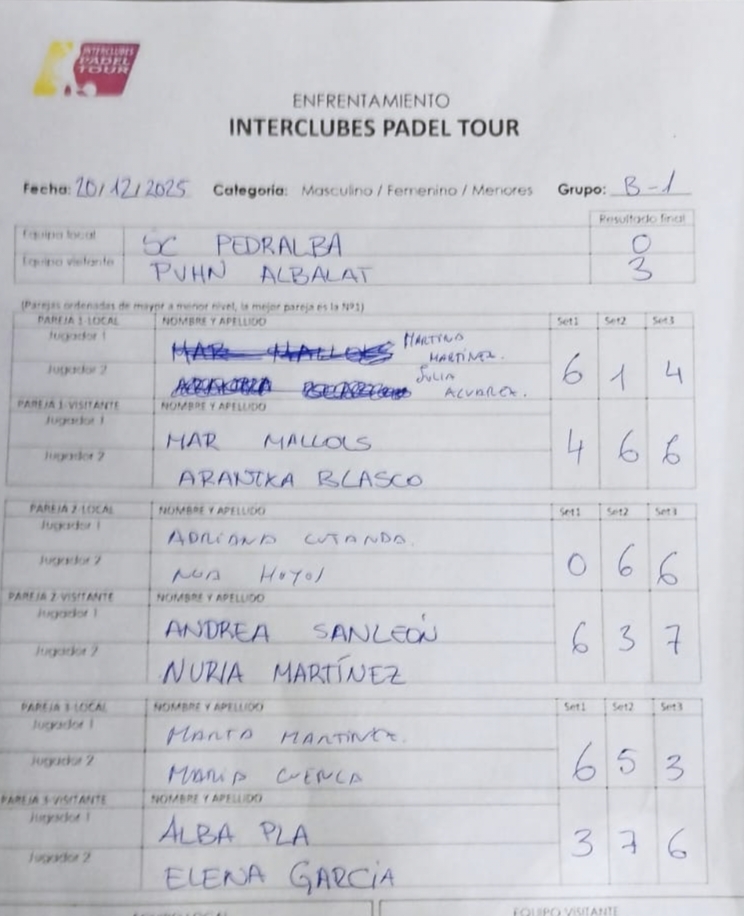 INTERCLUBES
PADEL
TOUR
ENFRENTAMIENTO
INTERCLUBES PADEL TOUR
Fecha: 20/12/2025 Categoría: Masculino / Femenino / Menores Grupo: B-1
Resultado final
Equipo local SC PEDRALBA 0
Equipo visitante PVHN ALBALAT 3
(Parejas ordenadas de mayor a menor nivel, la mejor pareja es la Nº1)
PAREJA 1-LOCAL NOMBRE Y APELLIDO Set1 Set2 Set3
Jugador 1 MAR MALLOLS MARTINA MARTÍNEZ.
Jugador 2 JULIA ALVAREZ.
6 1 4
PAREJA 1-VISITANTE NOMBRE Y APELLIDO
Jugador 1 MAR MALLOLS
Jugador 2 ARANTXA BLASCO
4 6 6
PAREJA 2-LOCAL NOMBRE Y APELLIDO Set1 Set2 Set3
Jugador 1 ADRIANA CUTANDA.
Jugador 2 HOYOS
0 6 6
PAREJA 2-VISITANTE NOMBRE Y APELLIDO
Jugador 1 ANDREA SANLEÓN
Jugador 2 NURIA MARTÍNEZ
6 3 7
PAREJA 3-LOCAL NOMBRE Y APELLIDO Set1 Set2 Set3
Jugador 1 MARTA MARTINEZ.
Jugador 2 MARIA CUENCA
6 5 3
PAREJA 3-VISITANTE NOMBRE Y APELLIDO
Jugador 1 ALBA PLA
Jugador 2 ELENA GARCÍA
3 7 6
EQUIPO LOCAL EQUIPO VISITANTE